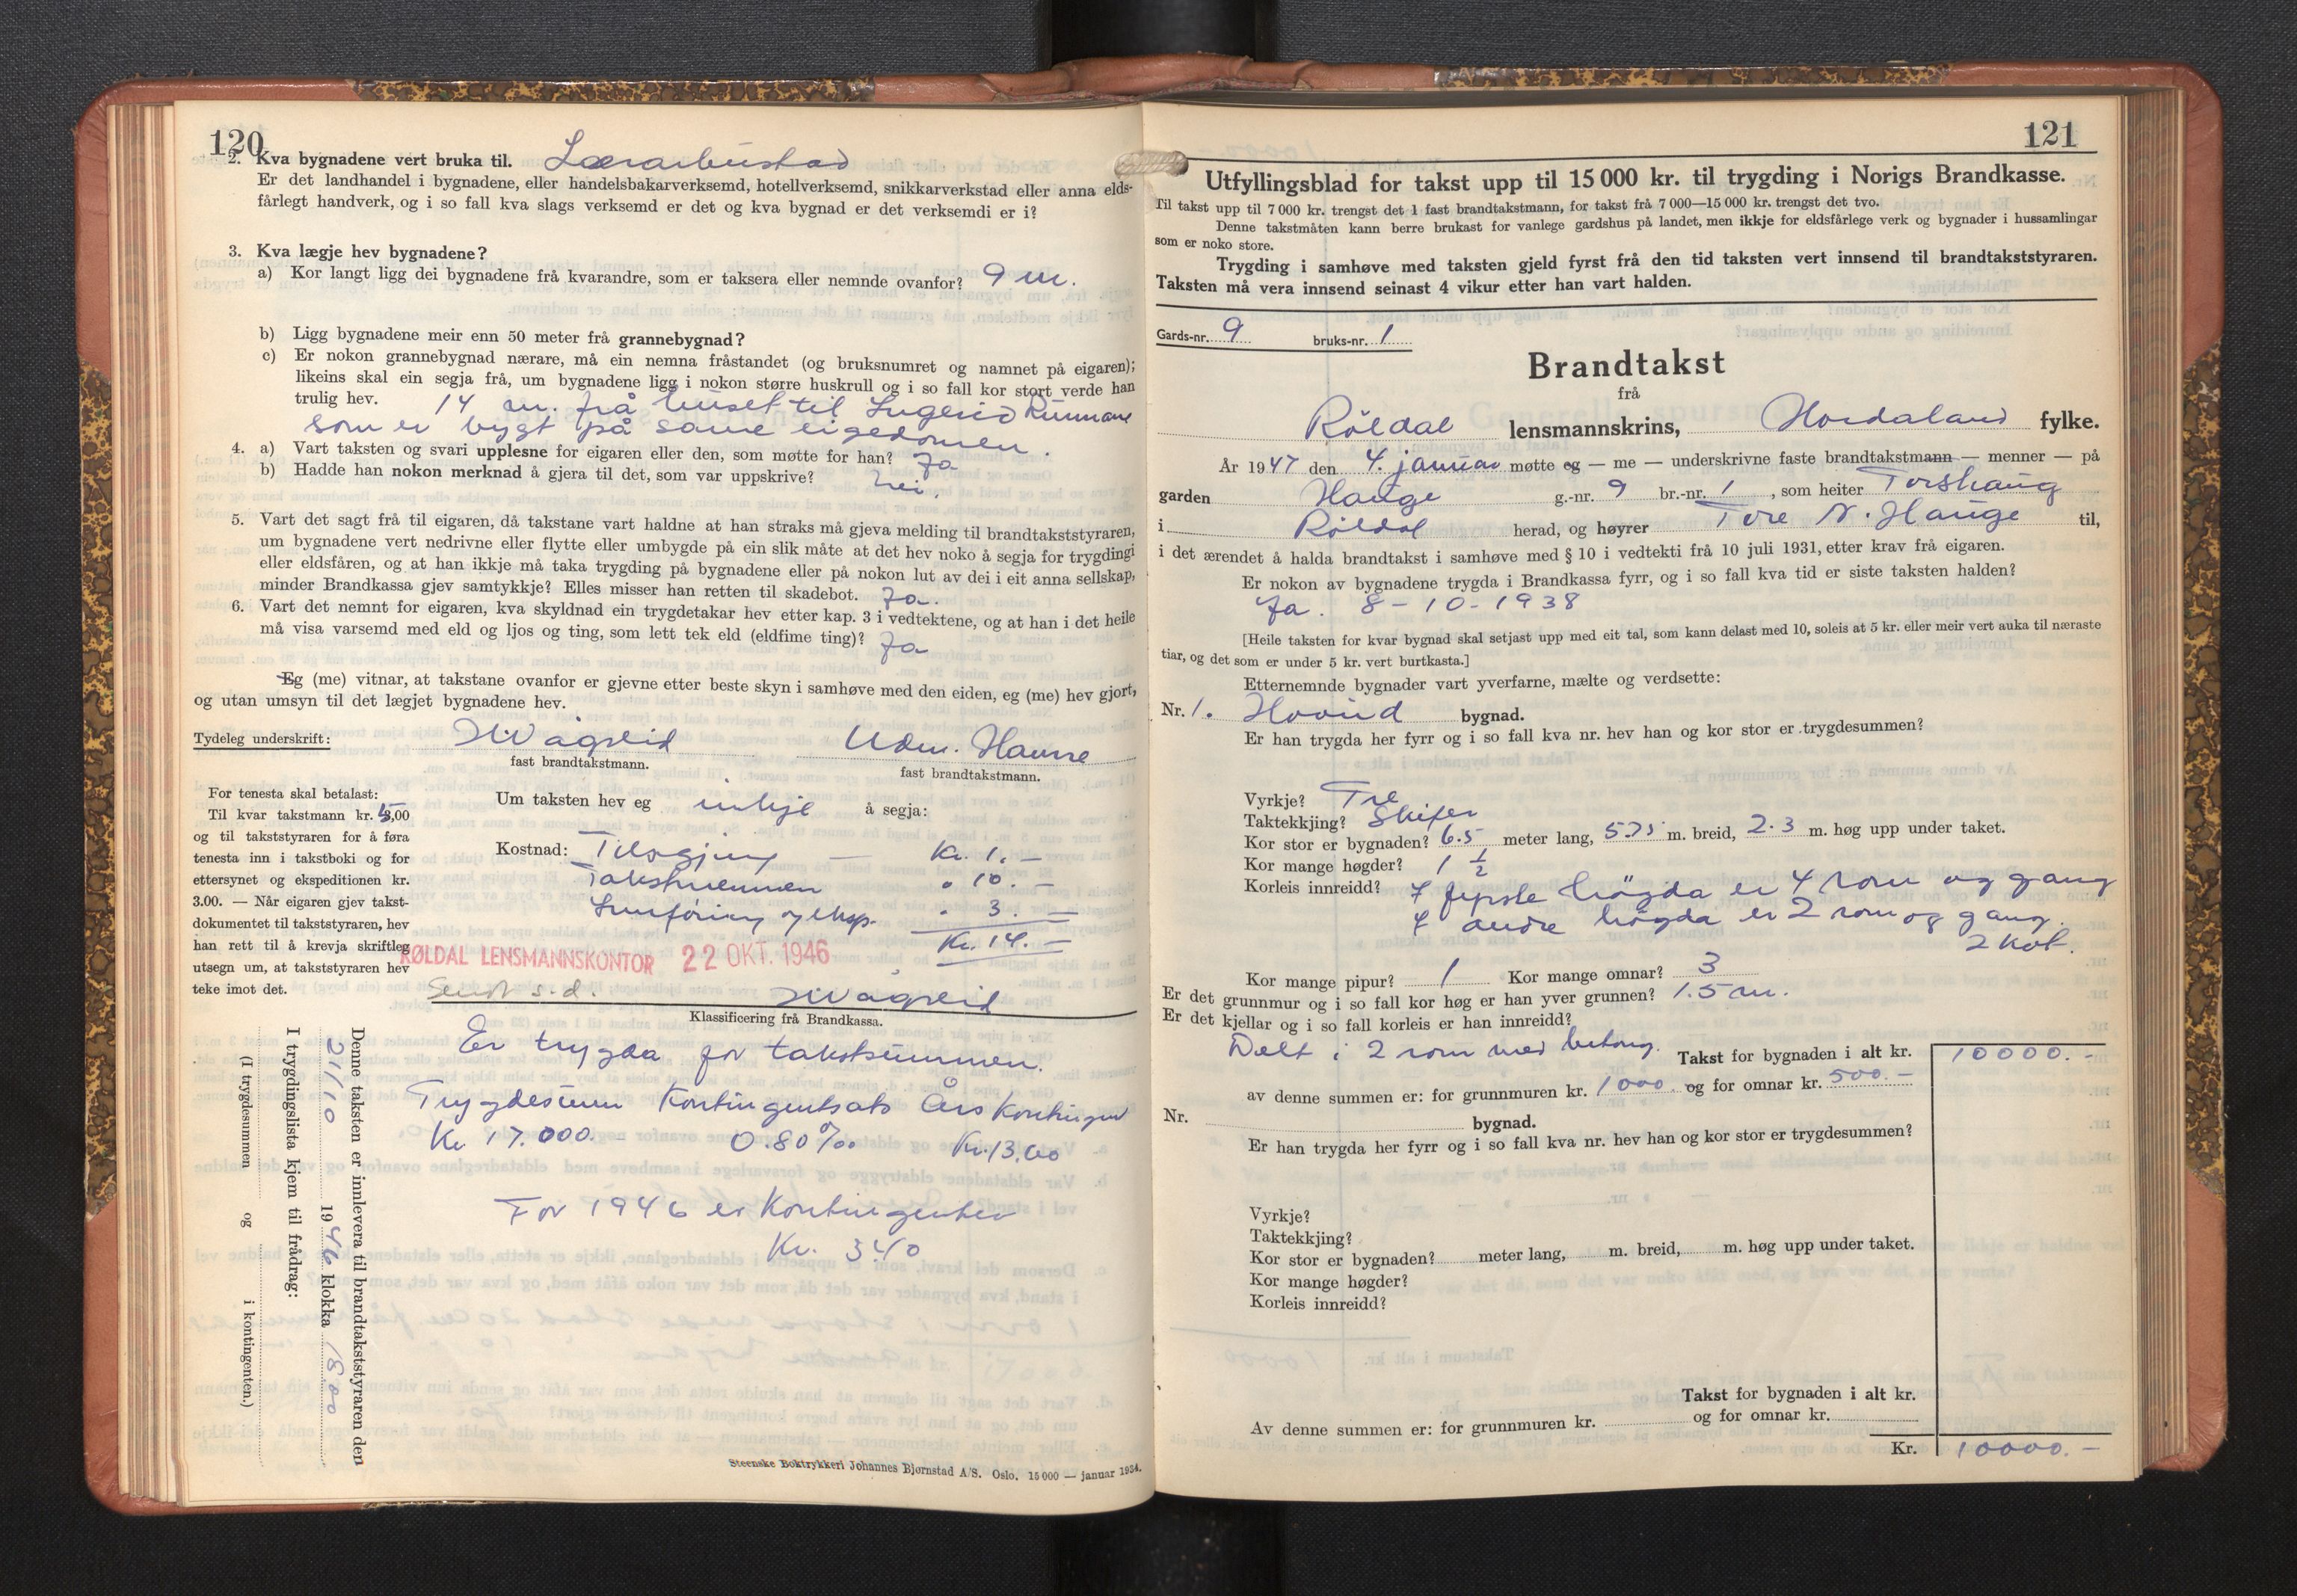 120
2. Kva bygnadene vert bruka til. Lærarbustad
Er det landhandel i bygnadene, eller handelsbakarverksemd, hotellverksemd, snikkarverkstad eller anna elds-
fårlegt handverk, og i so fall kva slags verksemd er det og kva bygnad er det verksemdi er i?
3. Kva lægje hev bygnadene?
a) Kor langt ligg dei bygnadene frå kvarandre, som er taksera eller nemnde ovanfor? 9 m.
b) Ligg bygnadene meir enn 50 meter frå grannebygnad?
c) Er nokon grannebygnad nærare, må ein nemna fråstandet (og bruksnumret og namnet på eigaren);
likeins skal ein segja frå, um bygnadene ligg i nokon større huskrull og i so fall kor stort verde han
trulig hev. 14 m. frå huset til Ingerid Rimmane
som er bygt på same eigedomen.
4. a) Vart taksten og svari upplesne for eigaren eller den, som møtte for han? Ja
b) Hadde han nokon merknad å gjera til det, som var uppskrive? Nei.
5. Vart det sagt frå til eigaren, då takstane vart haldne at han straks må gjeva melding til brandtakststyraren,
um bygnadene vert nedrivne eller flytte eller umbygde på ein slik måte at det hev noko å segja for trygdingi
eller eldsfåren, og at han ikkje må taka trygding på bygnadene eller på nokon lut av dei i eit anna sellskap,
minder Brandkassa gjev samtykkje? Elles misser han retten til skadebot. Ja.
6. Vart det nemnt for eigaren, kva skyldnad ein trygdetakar hev etter kap. 3 i vedtektene, og at han i det heile
må visa varsemd med eld og ljos og ting, som lett tek eld (eldfime ting)? Ja
Eg (me) vitnar, at takstane ovanfor er gjevne etter beste skyn i samhøve med den eiden, eg (me) hev gjort,
og utan umsyn til det lægjet bygnadene hev.
Tydeleg underskrift: Wågsleid Udm. Havrre
fast brandtakstmann. fast brandtakstmann.
For tenesta skal betalast:
Til kvar takstmann kr. 5,00
og til takststyraren for å føra
tenesta inn i takstboki og for
ettersynet og ekspeditionen kr.
3.00. — Når eigaren gjev takst-
dokumentet til takststyraren, hev
han rett til å krevja skriftleg
utsegn um, at takststyraren hev
teke imot det.
Um taksten hev eg inkje å segja:
Kostnad: Tilsegjing — Kr. 1.—
Takstmennen " 10.—
Innføring og eksp. " 3.—
Kr. 14.—
RØLDAL LENSMANNSKONTOR 22 OKT. 1946
Sendt s.d. Wågsleid
Klassificering frå Brandkassa.
Er trygda for takstsummen.
Trygdesum Kontingentsats Årskontingent
Kr 17.000. 0.80‰ Kr. 13,60
For 1946 er Kontingenten
Kr. 3.40
Denne taksten er innlevera til brandtakststyraren den
21/10 1946 klokka 18.00
I trygdingslista kjem til frådrag:
(I trygdesummen og i kontingenten.)
Steenske Boktrykkeri Johannes Bjørnstad A/S. Oslo. 15 000 — januar 1934.
121
Utfyllingsblad for takst upp til 15 000 kr. til trygding i Norigs Brandkasse.
Til takst upp til 7 000 kr. trengst det 1 fast brandtakstmann, for takst frå 7 000—15 000 kr. trengst det tvo.
Denne takstmåten kann berre brukast for vanlege gardshus på landet, men ikkje for eldsfårlege verk og bygnader i hussamlingar
som er noko store.
Trygding i samhøve med taksten gjeld fyrst frå den tid taksten vert innsend til brandtakststyraren.
Taksten må vera innsend seinast 4 vikur etter han vart halden.
Gards-nr. 9 bruks-nr. 1
Brandtakst
frå
Röldal lensmannskrins, Hordaland fylke.
År 1947 den 4. januar møtte eg — me — underskrivne faste brandtakstmann — menner — på
garden Hauge g.-nr. 9 br.-nr. 1, som heiter Torshaug
i Röldal herad, og høyrer Tore N. Hauge til,
i det ærendet å halda brandtakst i samhøve med § 10 i vedtekti frå 10 juli 1931, etter krav frå eigaren.
Er nokon av bygnadene trygda i Brandkassa fyrr, og i so fall kva tid er siste taksten halden?
Ja. 8-10-1938
[Heile taksten for kvar bygnad skal setjast upp med eit tal, som kann delast med 10, soleis at 5 kr. eller meir vert auka til næraste
tiar, og det som er under 5 kr. vert burtkasta.]
Etternemnde bygnader vart yverfarne, mælte og verdsette:
Nr. 1. Hovud bygnad.
Er han trygda her fyrr og i so fall kva nr. hev han og kor stor er trygdesummen?
Vyrkje? Tre
Taktekkjing? Skifer
Kor stor er bygnaden? 6.5 meter lang, 5.75 m. breid, 2.3 m. høg upp under taket.
Kor mange høgder? 1 1/2
Korleis innreidd? I fyrste högda er 4 rom og gang
I andre högda er 2 rom og gang.
2 kot.
Kor mange pipur? 1 Kor mange omnar? 3
Er det grunnmur og i so fall kor høg er han yver grunnen? 1.5 m.
Er det kjellar og i so fall korleis er han innreidd?
Delt i 2 rom med betong. Takst for bygnaden i alt kr. 10000.-
av denne summen er: for grunnmuren kr. 1000 og for omnar kr. 500.-
Nr. bygnad.
Er han trygda her fyrr og i so fall kva nr. hev han og kor stor er trygdesummen?
Vyrkje?
Taktekkjing?
Kor stor er bygnaden? meter lang, m. breid, m. høg upp under taket.
Kor mange høgder?
Korleis innreidd?
Takst for bygnaden i alt kr.
Av denne summen er: for grunnmuren kr. og for omnar kr.
Kr. 10000.-